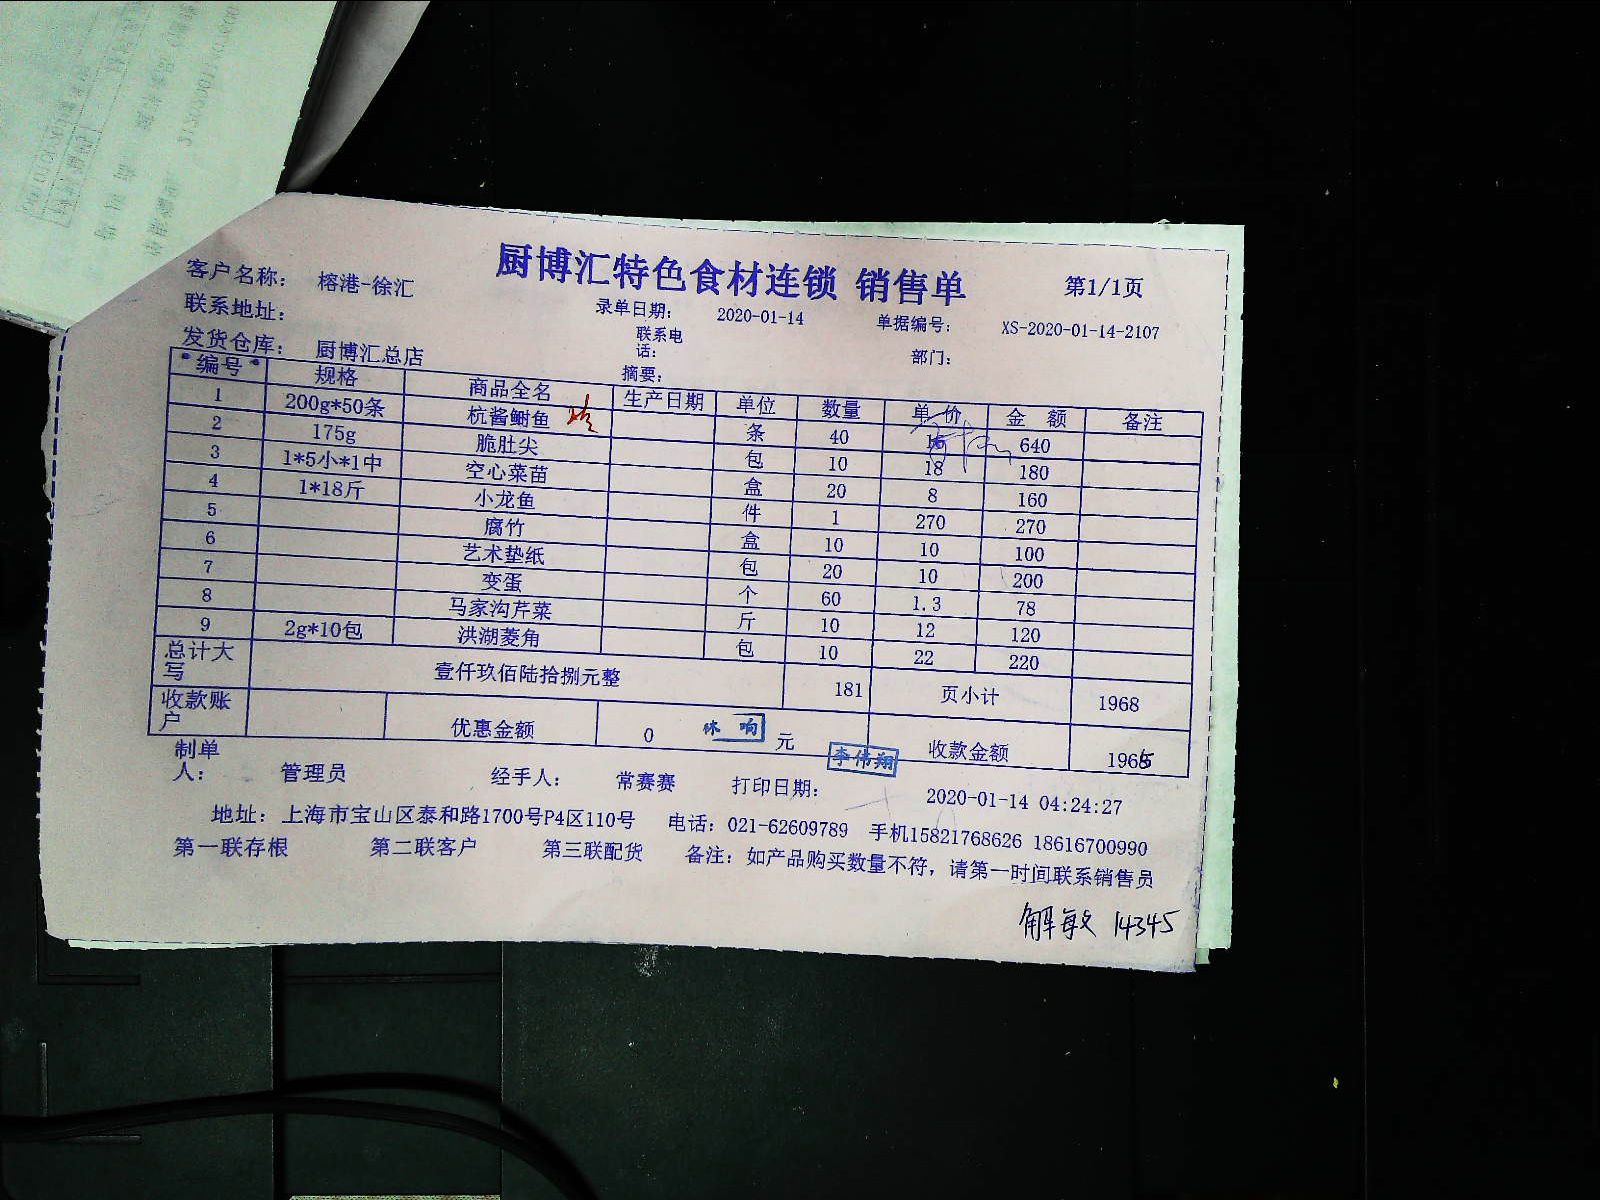 厨博汇特色食材连锁 销售单
第1/1页
客户名称： 榕港-徐汇
录单日期： 2020-01-14 单据编号： XS-2020-01-14-2107
联系地址： 联系电话： 部门：
发货仓库： 厨博汇总店 摘要：
编号 规格 商品全名 生产日期 单位 数量 单价 金额 备注
1 200g*50条 杭酱鲥鱼 条 40 16 640
2 175g 脆肚尖 包 10 18 180
3 1*5小*1中 空心菜苗 盒 20 8 160
4 1*18斤 小龙鱼 件 1 270 270
5 腐竹 盒 10 10 100
6 艺术垫纸 包 20 10 200
7 变蛋 个 60 1.3 78
8 马家沟芹菜 斤 10 12 120
9 2g*10包 洪湖菱角 包 10 22 220
总计大写 壹仟玖佰陆拾捌元整 181 页小计 1968
收款账户 优惠金额 0 元 收款金额 1965
李伟翔
制单人： 管理员 经手人： 常赛赛 打印日期： 2020-01-14 04:24:27
地址：上海市宝山区泰和路1700号P4区110号 电话：021-62609789 手机15821768626 18616700990
第一联存根 第二联客户 第三联配货 备注：如产品购买数量不符，请第一时间联系销售员
解敏 14345